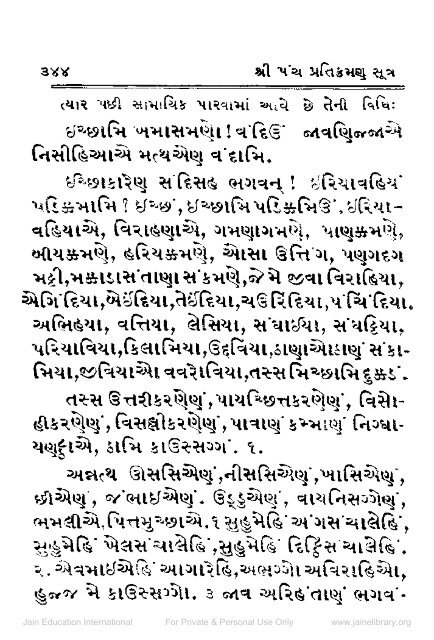 ૩૪૪ શ્રી પંચ પ્રતિક્રમણ સૂત્ર
ત્યાર પછી સામાયિક પારવામાં આવે છે તેની વિધિઃ
ઇચ્છામિ ખમાસમણો ! વંદિઉં જાવણિજ્જાએ
નિસીહિઆએ મત્થએણ વંદામિ.
ઇચ્છાકારેણ સંદિસહ ભગવન્ ! ઇરિયાવહિયં
પડિક્કમામિ ? ઇચ્છં, ઇચ્છામિ પડિક્કમિઉં, ઇરિયા-
વહિયાએ, વિરાહણાએ, ગમણાગમણે, પાણક્કમણે,
બીયક્કમણે, હરિયક્કમણે, ઓસા ઉત્તિંગ, પણગદગ
મટ્ટી,મક્કડાસંતાણા સંકમણે,જે મે જીવા વિરાહિયા,
એગિંદિયા,બેઇંદિયા,તેઇંદિયા,ચઉરિંદિયા,પંચિંદિયા.
અભિહયા, વત્તિયા, લેસિયા, સંઘાઇયા, સંઘટ્ટિયા,
પરિયાવિયા,કિલામિયા,ઉદ્દવિયા,ઠાણાઓઠાણં સંકા-
મિયા,જીવિયાઓ વવરોવિયા,તસ્સ મિચ્છામિ દુક્કડં.
તસ્સ ઉત્તરીકરણેણં,પાયચ્છિત્તકરણેણં, વિસો-
હીકરણેણં,વિસલ્લીકરણેણં,પાવાણં કમ્માણં નિગ્ઘા-
યણટ્ઠાએ, ઠામિ કાઉસ્સગ્ગં. ૧.
અન્નત્થ ઊસસિએણં,નીસસિએણં,ખાસિએણં,
છીએણં, જંભાઇએણં. ઉડ્ડુએણં, વાયનિસગ્ગેણં,
ભમલીએ,પિત્તમુચ્છાએ.૧ સુહુમેહિં અંગસંચાલેહિં,
સુહુમેહિં ખેલસંચાલેહિં,સુહુમેહિં દિટ્ઠિસંચાલેહિં.
૨. એવમાઇએહિં આગારેહિં,અભગ્ગો અવિરાહિઓ,
હુજ્જ મે કાઉસ્સગ્ગો. ૩ જાવ અરિહંતાણં ભગવં-
Jain Education International For Private & Personal Use Only www.jainelibrary.org